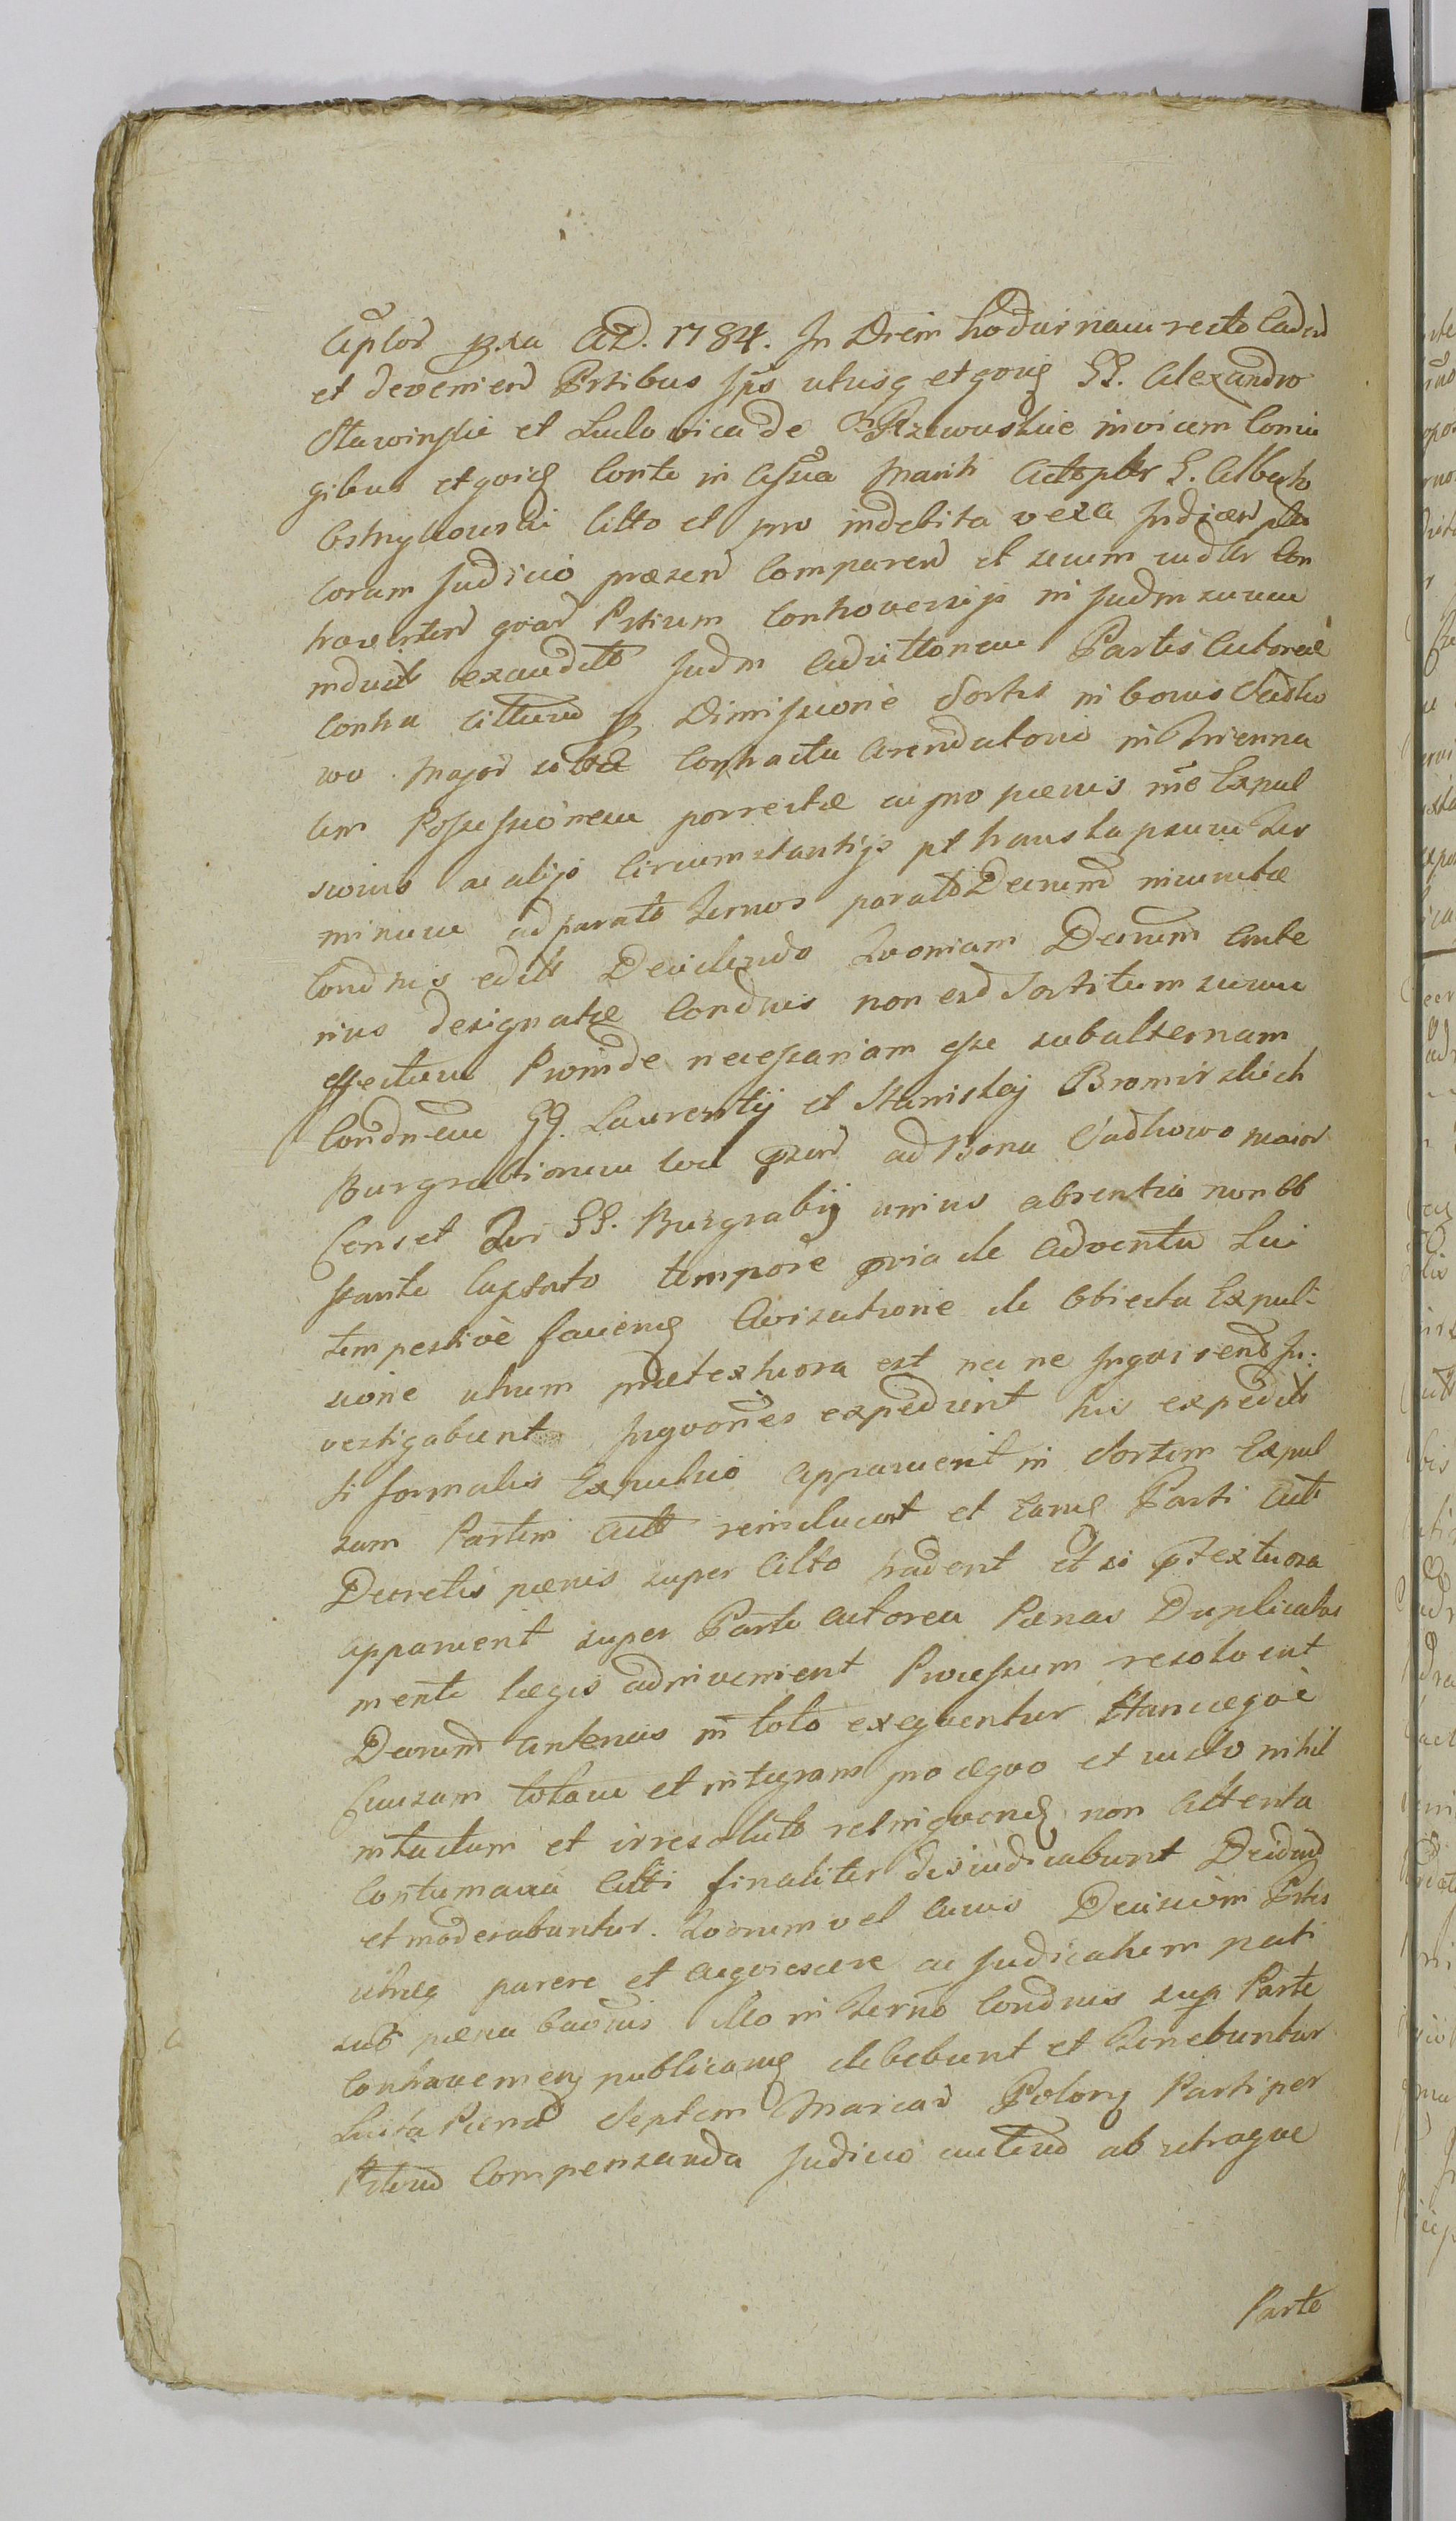 Aplor pxa AD. 1784. In Drem hodiernam recto Caden
et devenien Prtibus Ips utusq et gvis GG. Alexandro
Stawinskie et Ludovica de Rzewuskie invicem Coniu
gibus et gvis Conte in Assia Mariti Actoplr G. Alberto
Ostrykowski Citto et pro indebita vexa Indicen pla
coram Judicio præsen Comparen et secum iudlr Con
troverten gvar Prtium Controversijs in Judm suum
induct exaudits Judm Adcittonem Partis Actoreæ
Contra Cittum p Dimissione Sortis in bonis Sadko
wo major sibi Contractu Arendatorio in Trienna
lem Possessionem porrectæ ac pro pænis rne Expul
sionis ac alijs Circumstantijs pt trans lapsum Ter
minum ad parats Termos parats Decrum nicuntæ
Condnis edits Decidendo Qvoniam Decrum Ante
rius designatæ Condnis non est Sortitum suum
effectum Proinde necessariam esse subalternam
Condnem GG. Laurentij et Stanislaj Bromirskich
Burgrabiorum loci pzen ad Bona Sadkowo maior
Censet Qui GG. Burgrabij unius absentia non ob
stante Captato tempore pria de Adventu Sui
tempestivè faciens Avisatione de Obiecta Expul-
sione utrum prætextuosa est nec ne Inqvirend In-
vestigabunt Inqvones expedient his expedits
si formalis Expulsio apparuerit in Sortem Expul
sam Partem Act reinducent et Eamq Parti Act
Decretis pænis super Citto tradent et si ptextuosa
apparuerit super Parte Actorea Pænas Duplicatas
mente Legis adinvenient Processum resolvent
Decrum Antenus in toto exeqventur Hancqvè
Causam totam et integram pro æqvo et iusto nihil
intactum et irresolutb relinqvens non attenta
Contumacia Citti finaliter disiudicabunt Decidend
et moderabuntur. Qvorum vel Cuius Decisioni Prtes
utræq parere et acqviescere ac Judicatum pati
sub pæna banis Mo in Termo Condnis sup Parte
Contraveniens publicanq debebunt et tenebuntur
Luita Pæna Septem Marcar Polonq Parti per
Prtem Compensanda Judicio autem ab utraqve
Parte